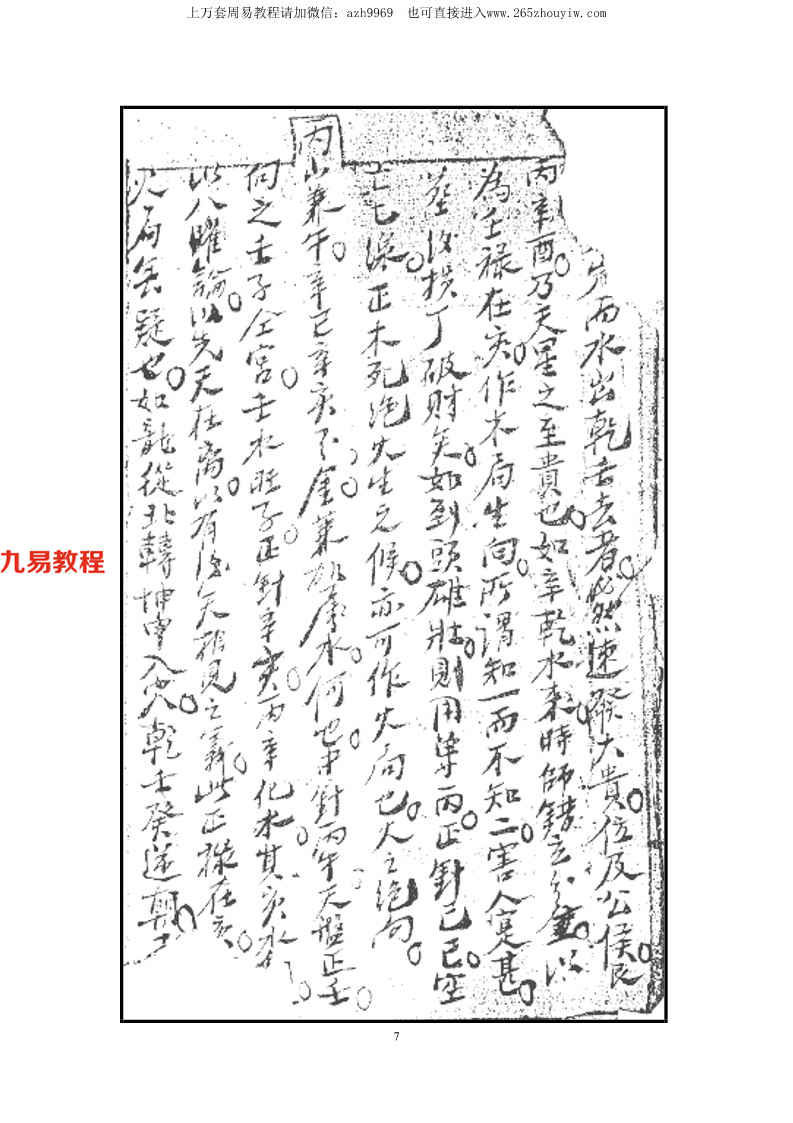 上万套周易教程请加微信：azh9969　也可直接进入www.265zhouyiw.com
而水出乾去者必然速發大貴位及公侯
丙辛酉乃天星之至貴也如辛乾水來時師錯立分金以
為壬祿在亥作木局生向所謂知一而不知二害人甚
後損丁破財矣如到頭雄壯則用單丙正針己巳空
正木死絕火生之候亦可作火局也火之絕向
丙山兼午辛巳辛亥分金兼水何也中針丙午天盤正壬
向之壬子全宮壬水旺子正針辛亥丙辛化水其亥水
以八曜論以先天在离以有後天相見之義此正祿在亥
火局無疑也如龍從北轉坤申入穴乾壬癸逆朝
九易教程
7